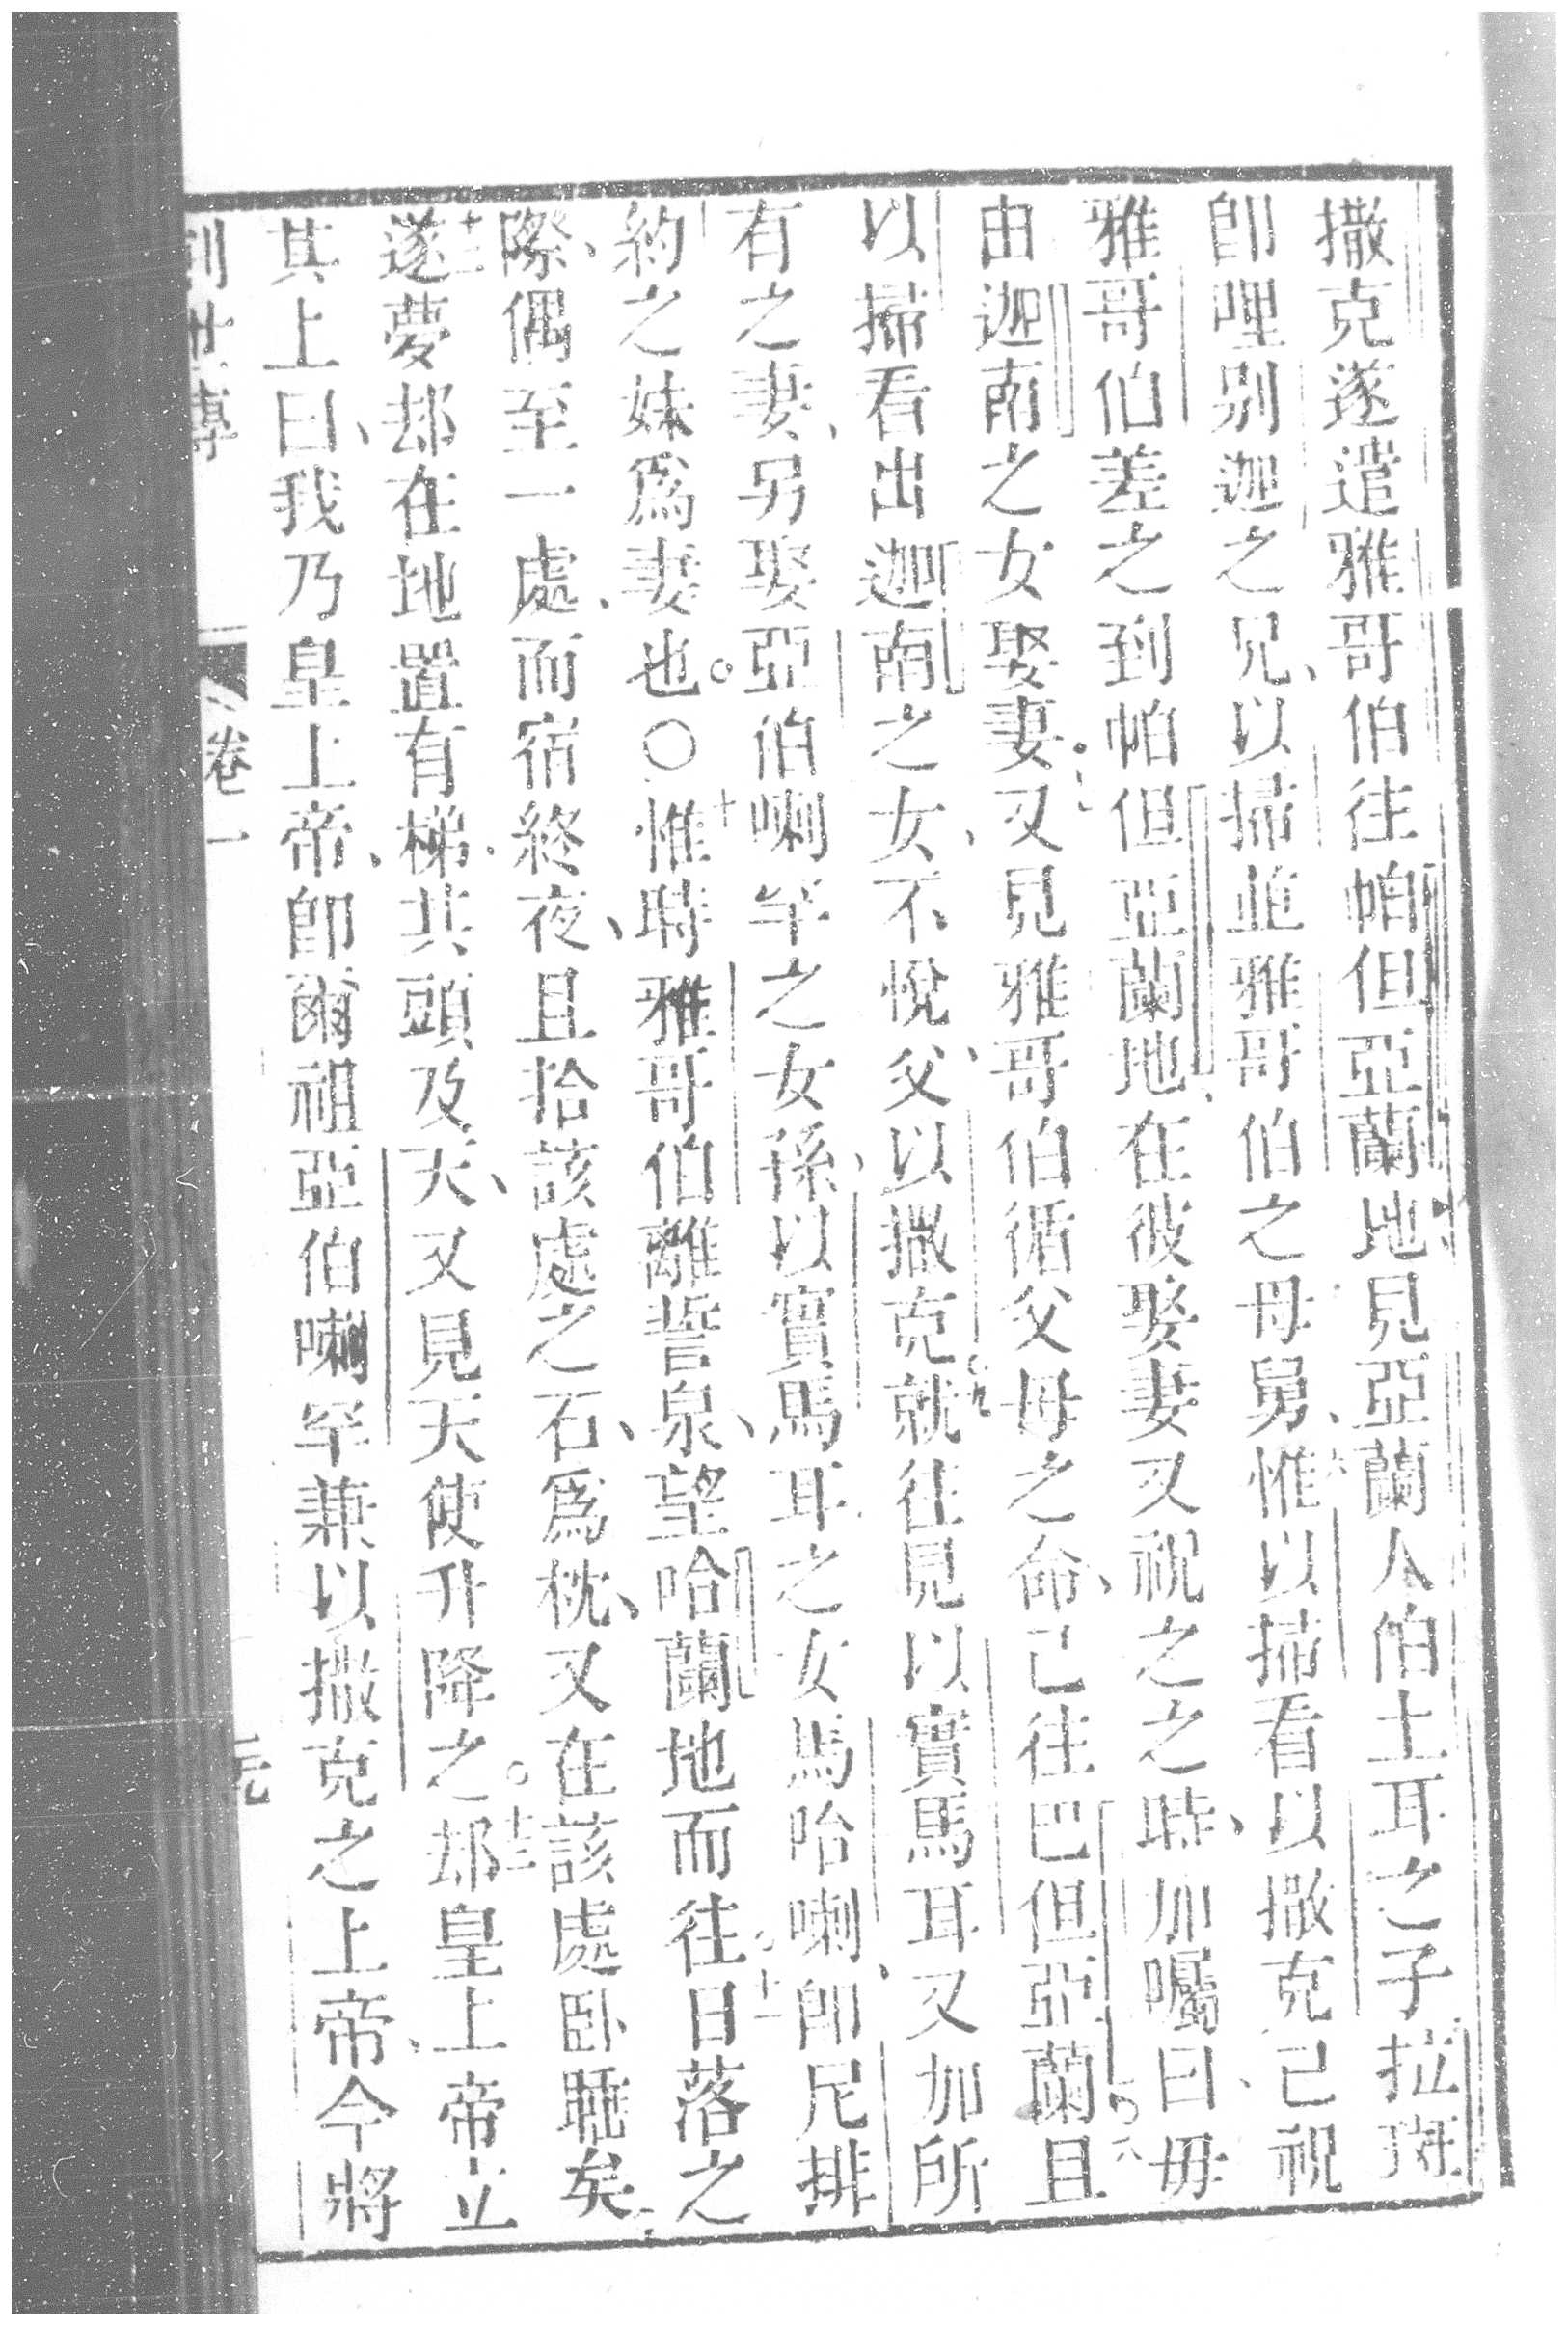 撒克遂遣雅哥伯往帕但亞蘭地見亞蘭人伯土耳之子拉班
卽哩別迦之兄、以掃並雅哥伯之母舅、惟以掃看以撒克已祝
雅哥伯差之到帕但亞蘭地、在彼娶妻又祝之之時、加囑曰、毋
由迦南之女娶妻。七又見雅哥伯循父母之命、已往巴但亞蘭。八且
以掃看出迦南之女、不悅父、以撒克。九就往見以實馬耳又加所
有之妻、另娶亞伯喇罕之女孫、以實馬耳之女馬哈喇、卽尼排
約之妹爲妻也。〇十惟時雅哥伯離誓泉、望哈蘭地而往。十一日落之
際、偶至一處、而宿終夜、且拾該處之石、爲枕、又在該處臥睡矣
十二遂夢却在地置有梯、其頭及天、又見天使升降之。十三却皇上帝立
其上曰、我乃皇上帝、卽爾祖亞伯喇罕兼以撒克之上帝、今將
卷一